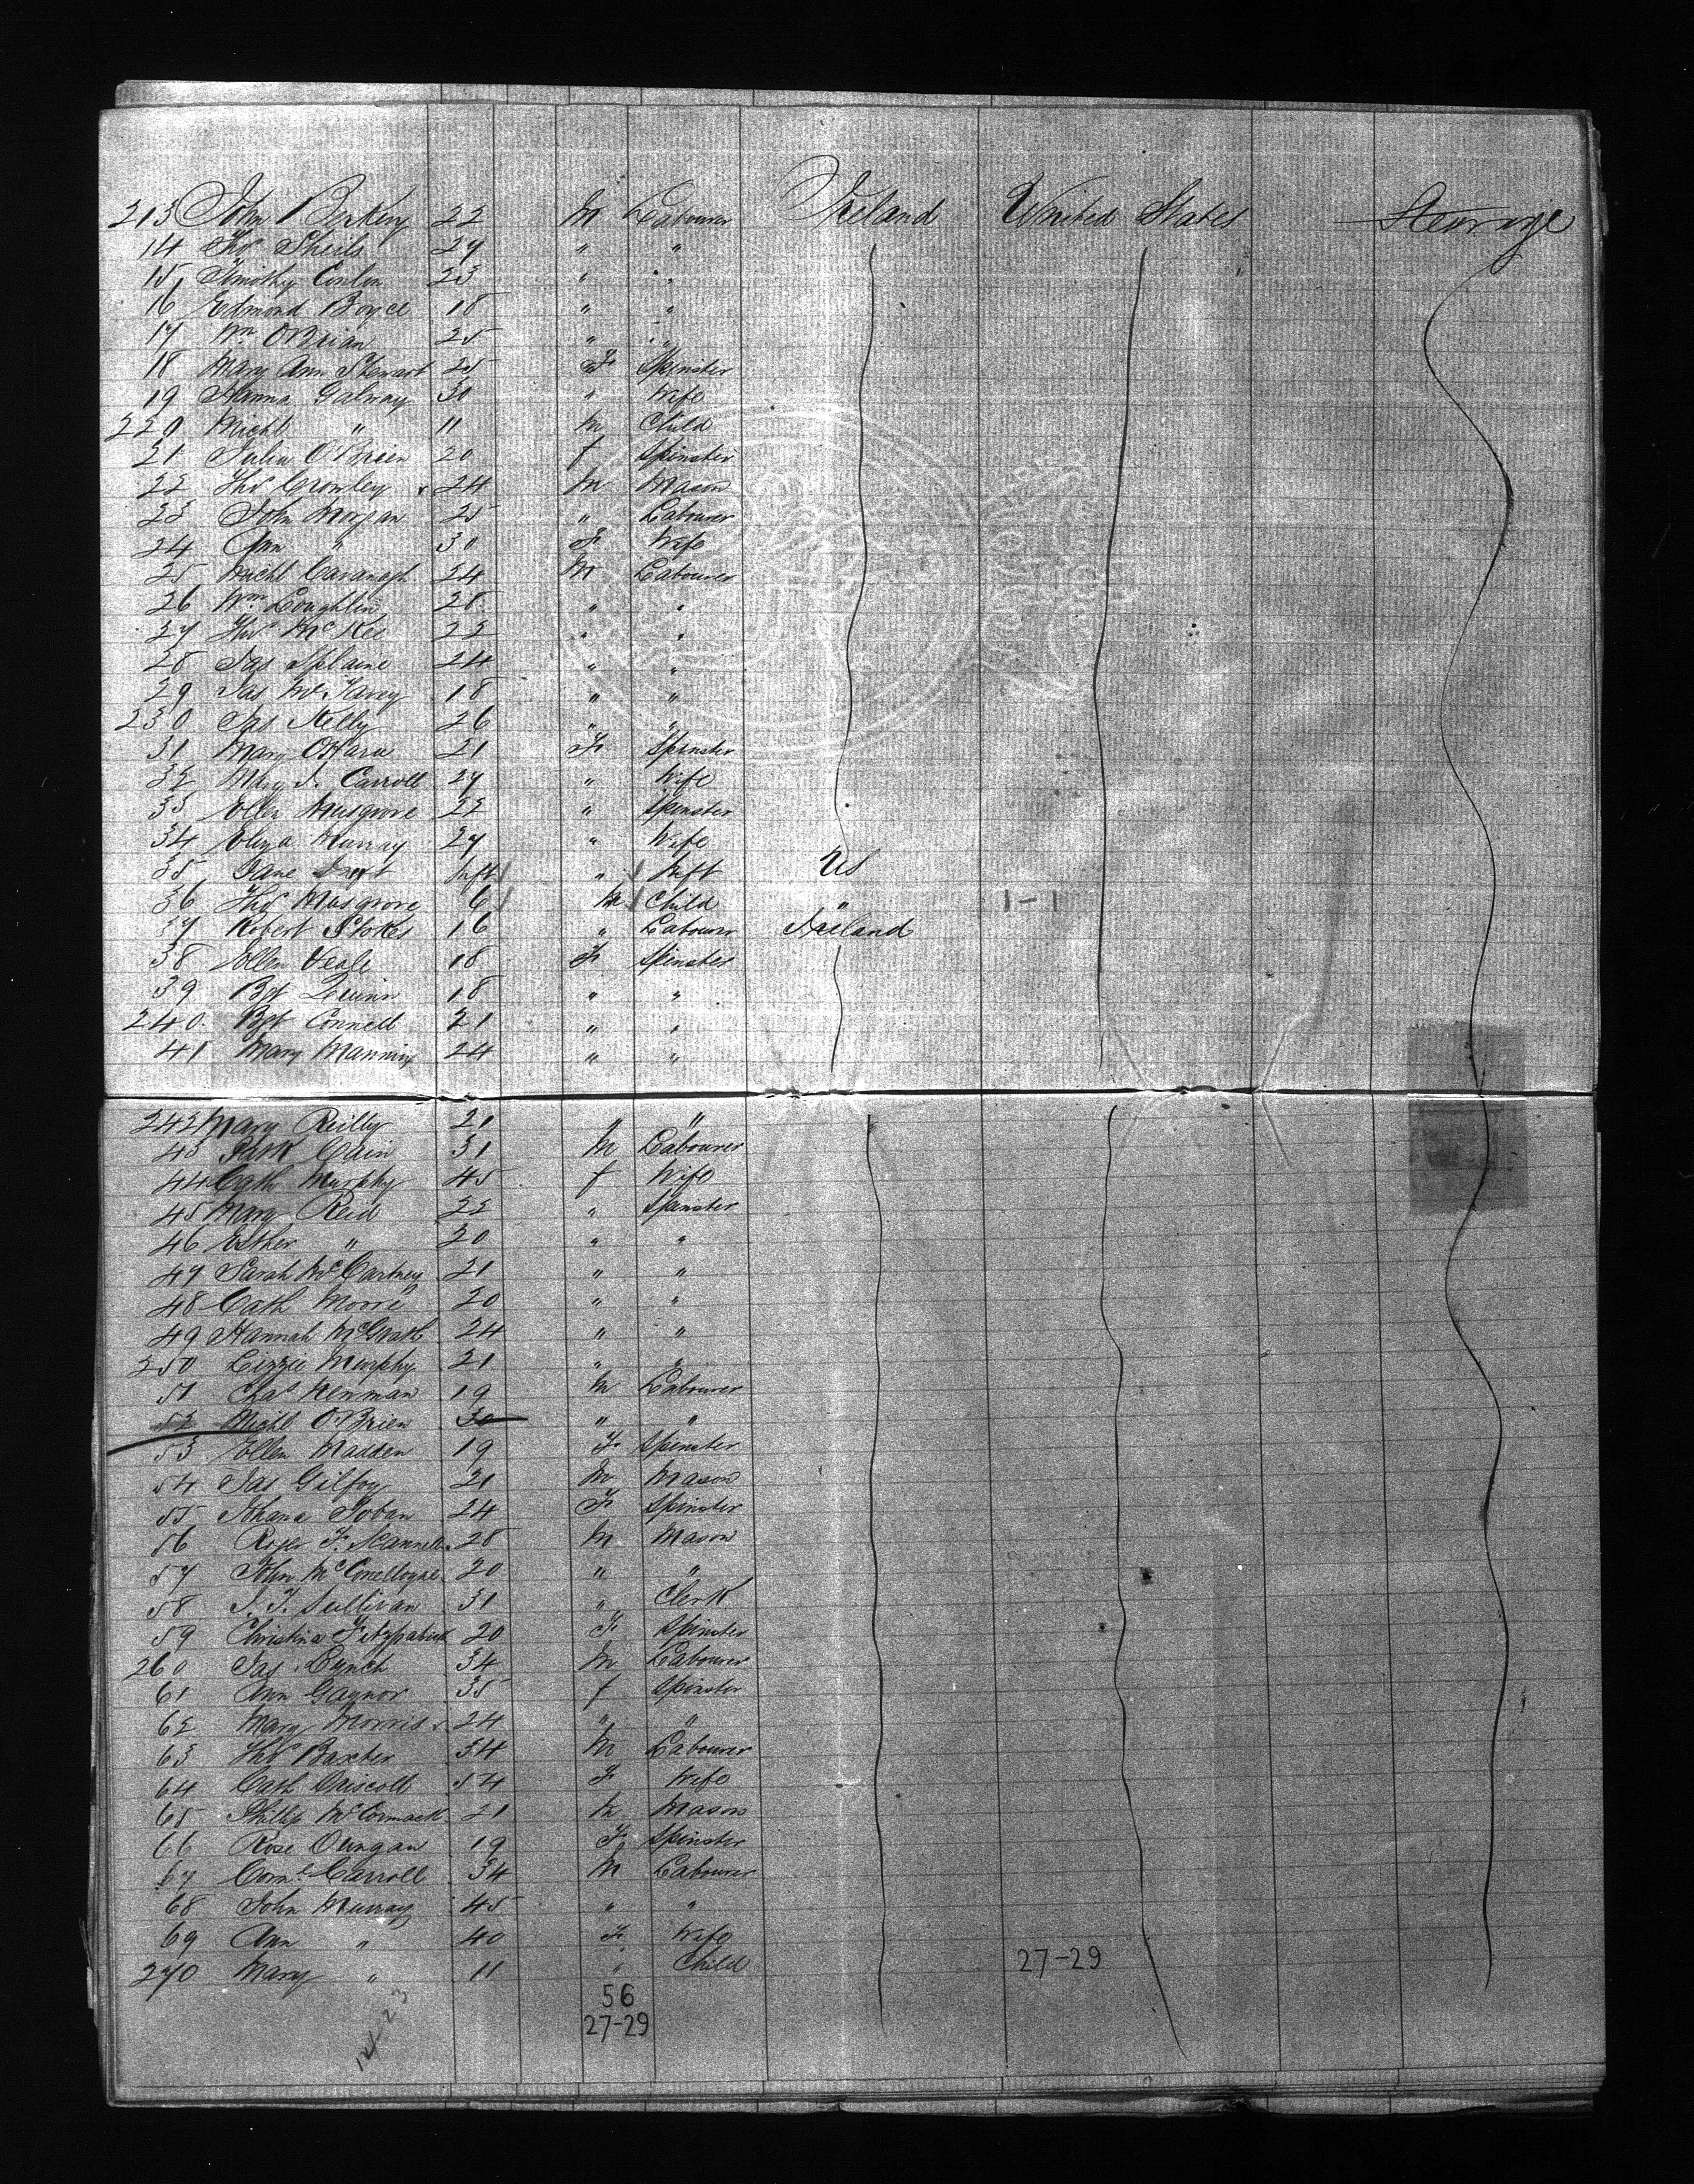 213 John Berkery 22 M Labourer Ireland United States Steerage
14 Thos Sheils 27 " "
15 Timothy Conlon 23 " "
16 Edmond Boyce 18 " "
17 Wm O'Brian 25 " "
18 Mary Ann Stewart 25 F Spinster
19 Hanna Galway 30 " Wife
220 Michl " 11 M Child
21 Julia O'Brien 20 f Spinster
22 Thos Crowley 24 M Mason
23 John Morgan 25 " Labourer
24 Ann " 30 F Wife
25 Michl Cavanagh 24 M Labourer
26 Wm Loughlin 28 " "
27 Thos McKee 22 " "
28 Jas Splaine 24 " "
29 Jas 18 " "
230 Jas Kelly 26 " "
31 Mary O'Hara 21 F Spinster
32 Mary J. Carroll 27 " Wife
33 Ellen Musgrove 22 " Spinster
34 Eliza Murray 27 " Wife
35 Jane Inft " Inft US
36 Thos Musgrove 6 M Child " 1-1
37 Robert Stokes 16 " Labourer Ireland
38 Ellen Veale 18 F Spinster
39 Bgt Quinn 18 " "
240 Bgt Connell 21 " "
41 Mary Manning 24 " "
242 Mary Reilly 21 " "
43 Patk Cain 31 M Labourer
44 Cath Murphy 45 f Wife
45 Mary Reid 22 " Spinster
46 Esther " 20 " "
47 Sarah McCartney 21 " "
48 Cath Moore 20 " "
49 Hannah McGrath 24 " "
250 Lizzie Murphy 21 " "
51 Chas Newman 19 M Labourer
52 Michl O'Brien 30 " "
53 Ellen Madden 19 F Spinster
54 Jas Gilfoy 21 M Mason
55 Johana Toban 24 F Spinster
56 Roger F. Scannell 28 M Mason
57 John 20 " "
58 J. J. Sullivan 31 " Clerk
59 Christina Fitzpatrick 20 F Spinster
260 Jas Lynch 34 M Labourer
61 Ann Gaynor 35 f Spinster
62 Mary Morris 24 " "
63 Thos Baxter 34 M Labourer
64 Cath Driscoll 54 F Wife
65 Phillip McCormack 21 M Mason
66 Rose Dungan 19 F Spinster
67 Corns Carroll 34 M Labourer
68 John Murray 45 " "
69 Ann " 40 F Wife
270 Mary " 11 " Child 27-29
56
27-29